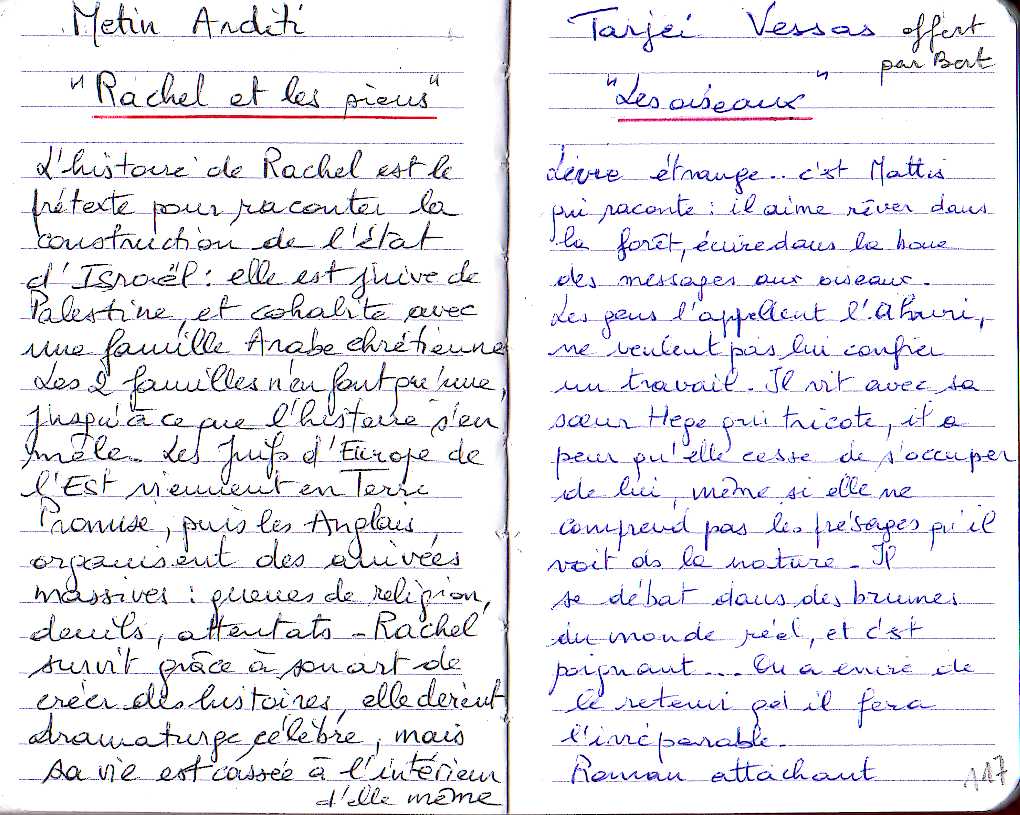 Metin Arditi
"Rachel et les siens"
L'histoire de Rachel est le
prétexte pour raconter la
construction de l'état
d'Israël : elle est juive de
Palestine, et cohabite avec
une famille Arabe chrétienne
Les 2 familles n'en font qu'une,
jusqu'à ce que l'histoire s'en
mêle. Les Juifs d'Europe de
l'Est viennent en Terre
Promise, puis les Anglais
organisent des arrivées
massives : guerres de religion,
deuils, attentats - Rachel
survit grâce à son art de
créer des histoires, elle devient
dramaturge célèbre, mais
sa vie est cassée à l'intérieur
d'elle même
Tarjei Vessas offert
par Bert
"Les oiseaux"
Livre étrange.. c'est Mattis
qui raconte : il aime rêver dans
la forêt, écrire dans la boue
des messages aux oiseaux.
Les gens l'appellent l'Ahuri,
ne veulent pas lui confier
un travail. Il vit avec sa
sœur Hege qui tricote, il a
peur qu'elle cesse de s'occuper
de lui, même si elle ne
comprend pas les présages qu'il
voit ds la nature - Il
se débat dans des brumes
du monde réel, et c'est
poignant.... On a envie de
le retenir qd il fera
l'irréparable.
Roman attachant
117